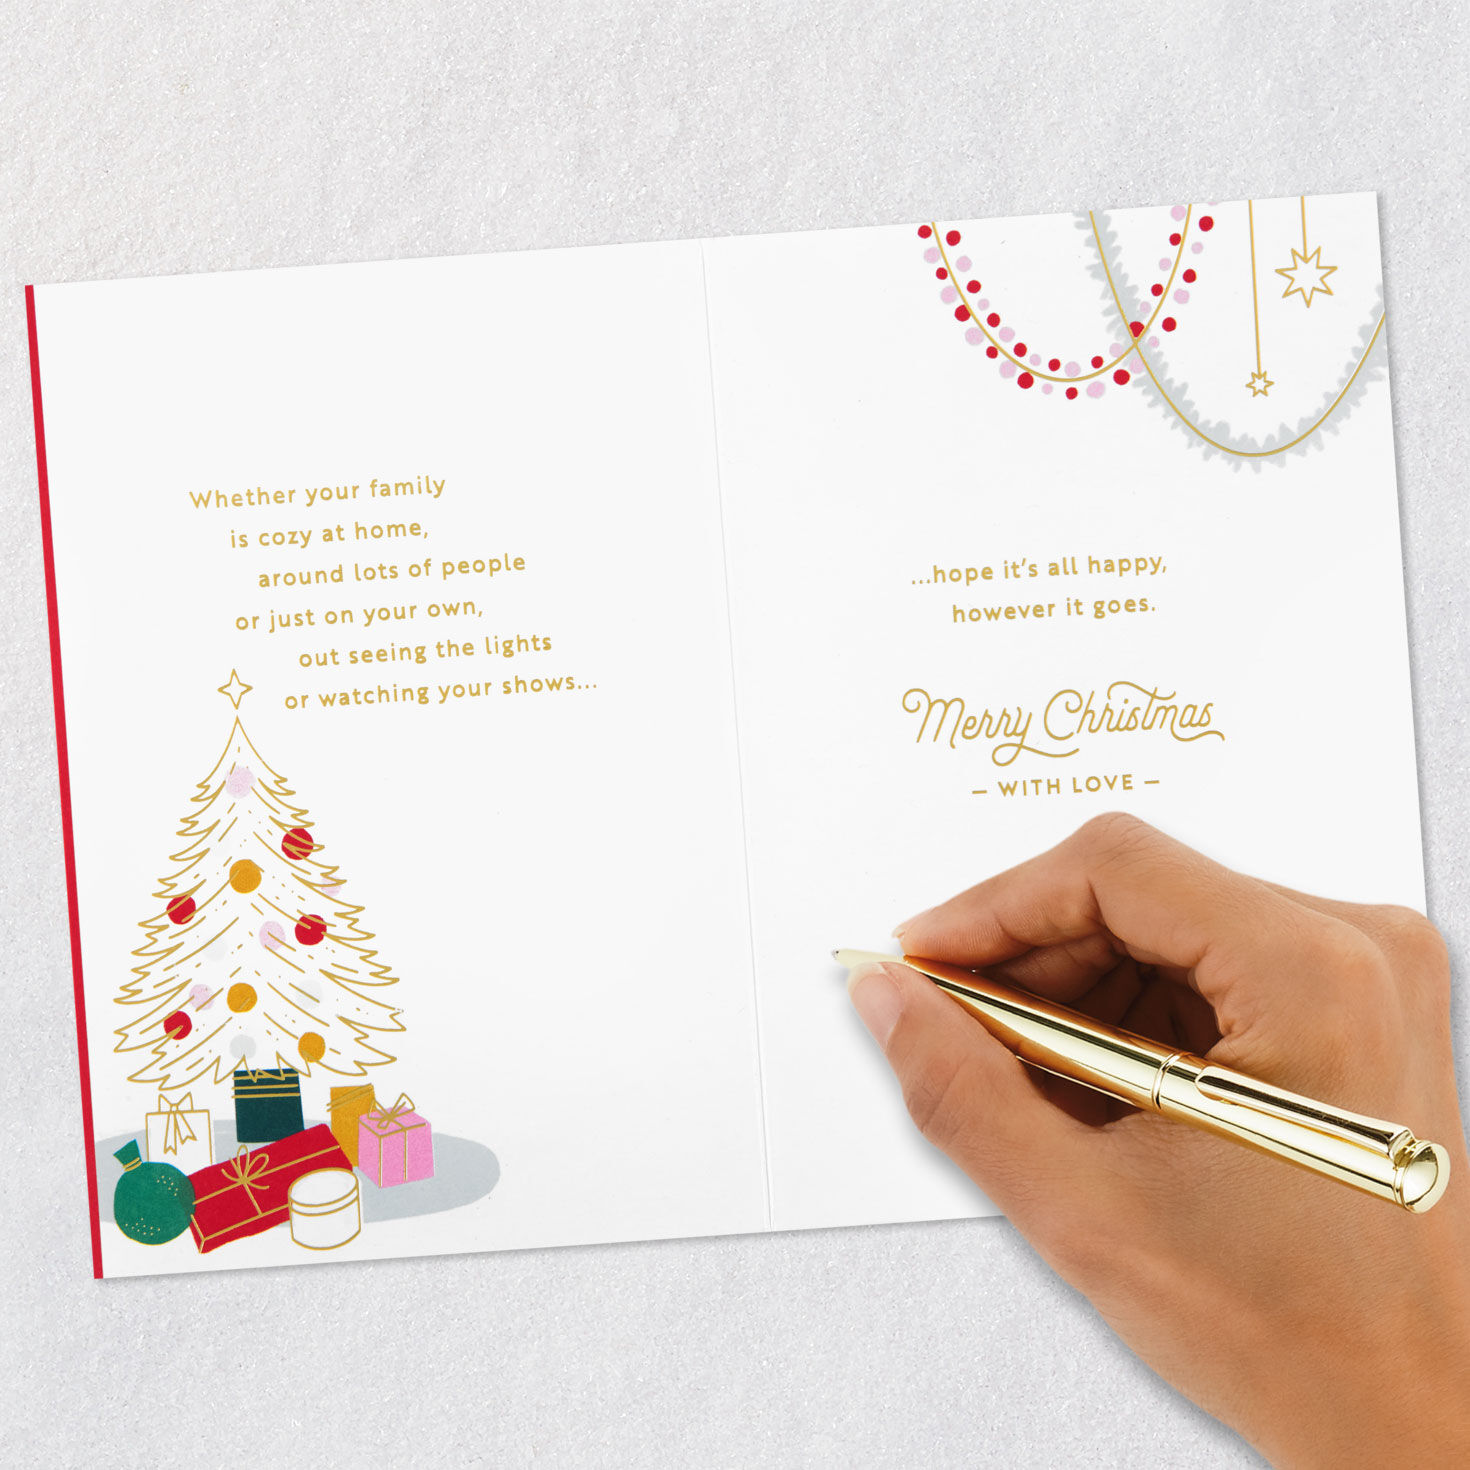 Whether your family
is cozy at home,
around lots of people
or just on your own,
out seeing the lights
or watching your shows...
...hope it's all happy,
however it goes.
Merry Christmas
– WITH LOVE –